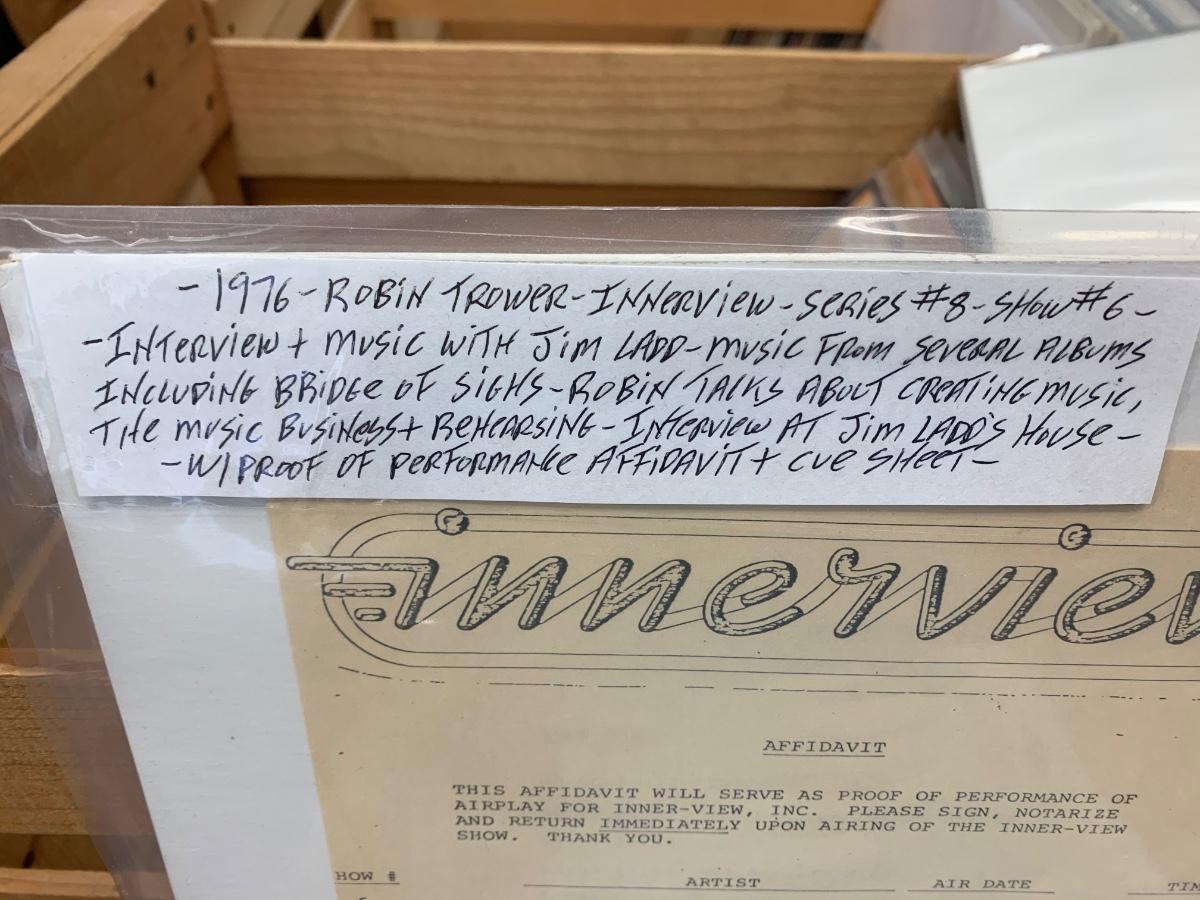 -1976-ROBIN TROWER-INNERVIEW-SERIES #8-SHOW #6-
-INTERVIEW + MUSIC WITH JIM LADD-MUSIC FROM SEVERAL ALBUMS
INCLUDING BRIDGE OF SIGHS-ROBIN TALKS ABOUT CREATING MUSIC,
THE MUSIC BUSINESS + REHEARSING-INTERVIEW AT JIM LADD'S HOUSE-
-W/PROOF OF PERFORMANCE AFFIDAVIT + CUE SHEET-
innerview
AFFIDAVIT
THIS AFFIDAVIT WILL SERVE AS PROOF OF PERFORMANCE OF
AIRPLAY FOR INNER-VIEW, INC. PLEASE SIGN, NOTARIZE
AND RETURN IMMEDIATELY UPON AIRING OF THE INNER-VIEW
SHOW. THANK YOU.
HOW # ARTIST AIR DATE TIM